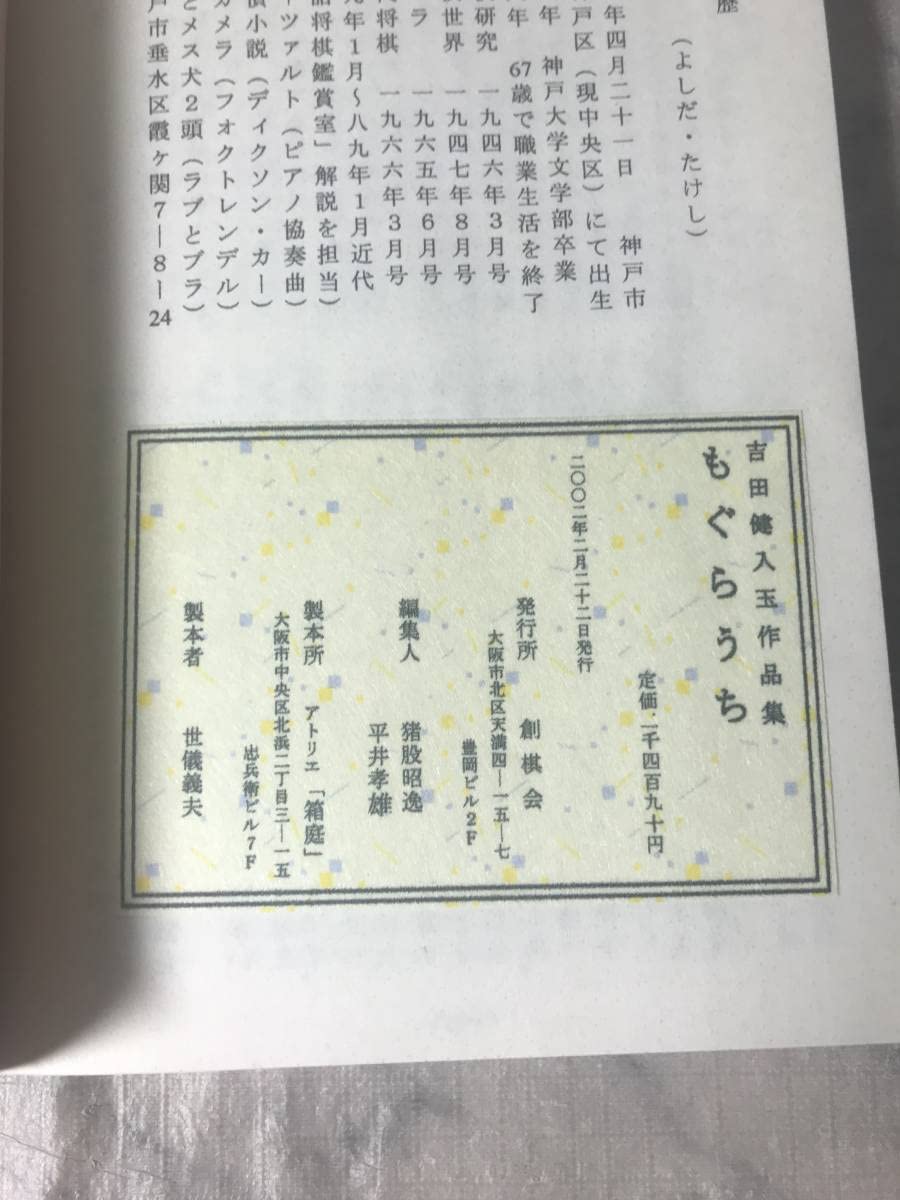 歴
(よしだ・たけし)
年四月二十一日 神戸市
戸区(現中央区)にて出生
年 神戸大学文学部卒業
年 67歳で職業生活を終了
研究 一九四六年3月号
世界 一九四七年8月号
ラ 一九六五年6月号
将棋 一九六六年3月号
九年1月〜八九年1月近代
詰将棋鑑賞室」解説を担当)
ーツァルト(ピアノ協奏曲)
偵小説(ディクソン・カー)
カメラ(フォクトレンデル)
とメス犬2頭(ラブとブラ)
戸市垂水区霞ヶ関7―8―24
吉田健入玉作品集
もぐらうち
定価・二千四百九十円
二〇〇二年二月二十二日発行
発行所 創棋会
大阪市北区天満四―一五―七
豊岡ビル2F
編集人 猪股昭逸
平井孝雄
製本所 アトリエ「箱庭」
大阪市中央区北浜二丁目三―一五
忠兵衛ビル7F
製本者 世儀義夫